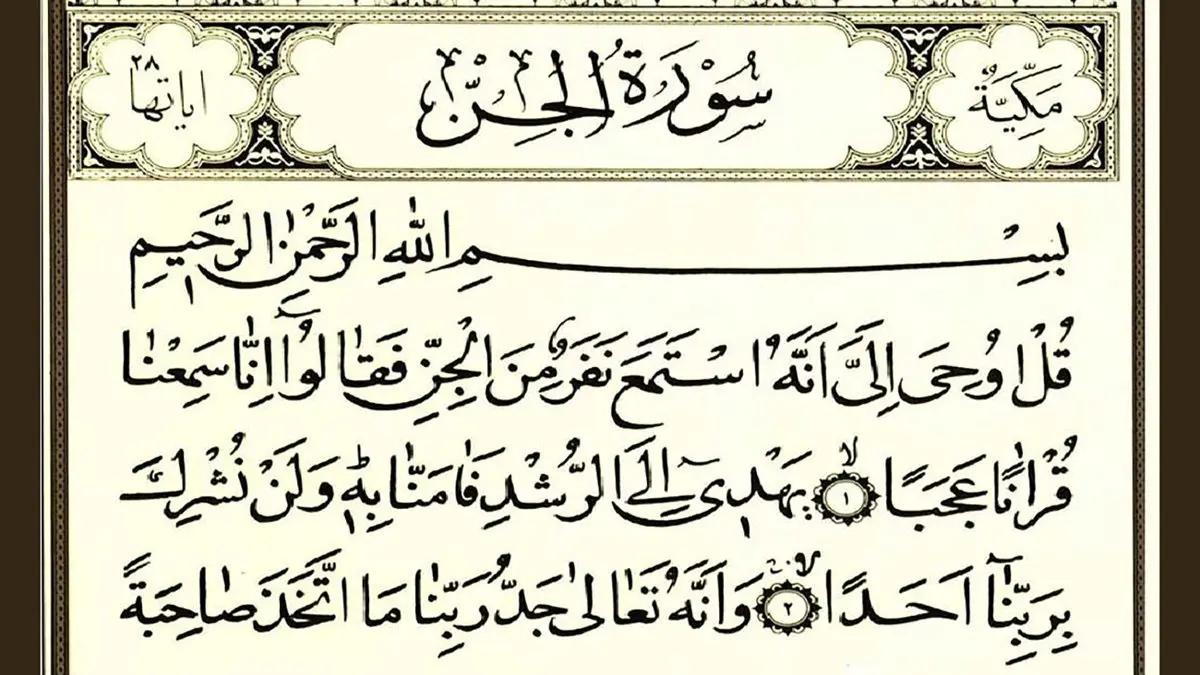 مَكِّيَّةٌ سُوْرَةُ الْجِنِّ اياتها ٢٨
بِسْمِ اللّٰهِ الرَّحْمٰنِ الرَّحِيمِ
قُلْ اُوحِىَ اِلَىَّ اَنَّهُ اسْتَمَعَ نَفَرٌ مِنَ الْجِنِّ فَقَالُوا اِنَّا سَمِعْنَا
قُرْاٰنًا عَجَبًا ﴿١﴾ يَهْدِىٓ اِلَى الرُّشْدِ فَاٰمَنَّا بِهٖ وَلَنْ نُشْرِكَ
بِرَبِّنَٓا اَحَدًا ﴿٢﴾ وَاَنَّهُ تَعَالٰى جَدُّ رَبِّنَا مَا اتَّخَذَ صَاحِبَةً